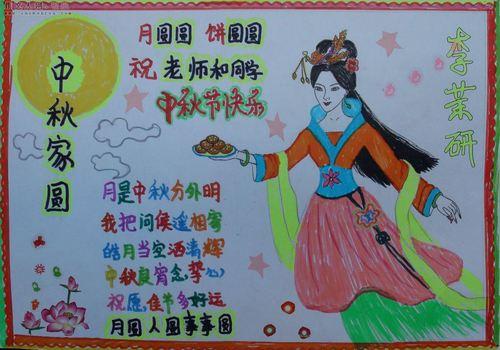 中秋家圆
月圆圆 饼圆圆
祝老师和同学
中秋节快乐
李茉研
月是中秋分外明
我把问候遥相寄
皓月当空洒清辉
中秋良宵念挚(心)
祝愿佳节多好运
月圆人圆事事圆